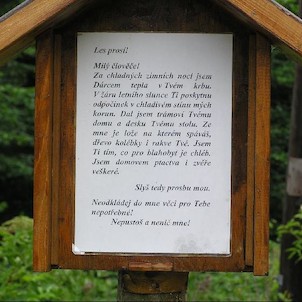 Les prosí!
Milý člověče!
Za chladných zimních nocí jsem
Dárcem tepla v Tvém krbu.
V žáru letního slunce Ti poskytnu
odpočinek v chladivém stínu mých
korun. Dal jsem trámoví Tvému
domu a desku Tvému stolu. Ze
mne je lože na kterém spáváš,
dřevo kolébky i rakve Tvé. Jsem
Ti tím, co pro blahobyt je chléb.
Jsem domovem ptactva i zvěře
veškeré.
Slyš tedy prosbu mou.
Neodkládej do mne věci pro Tebe
nepotřebné!
Nepustoš a nenič mne!